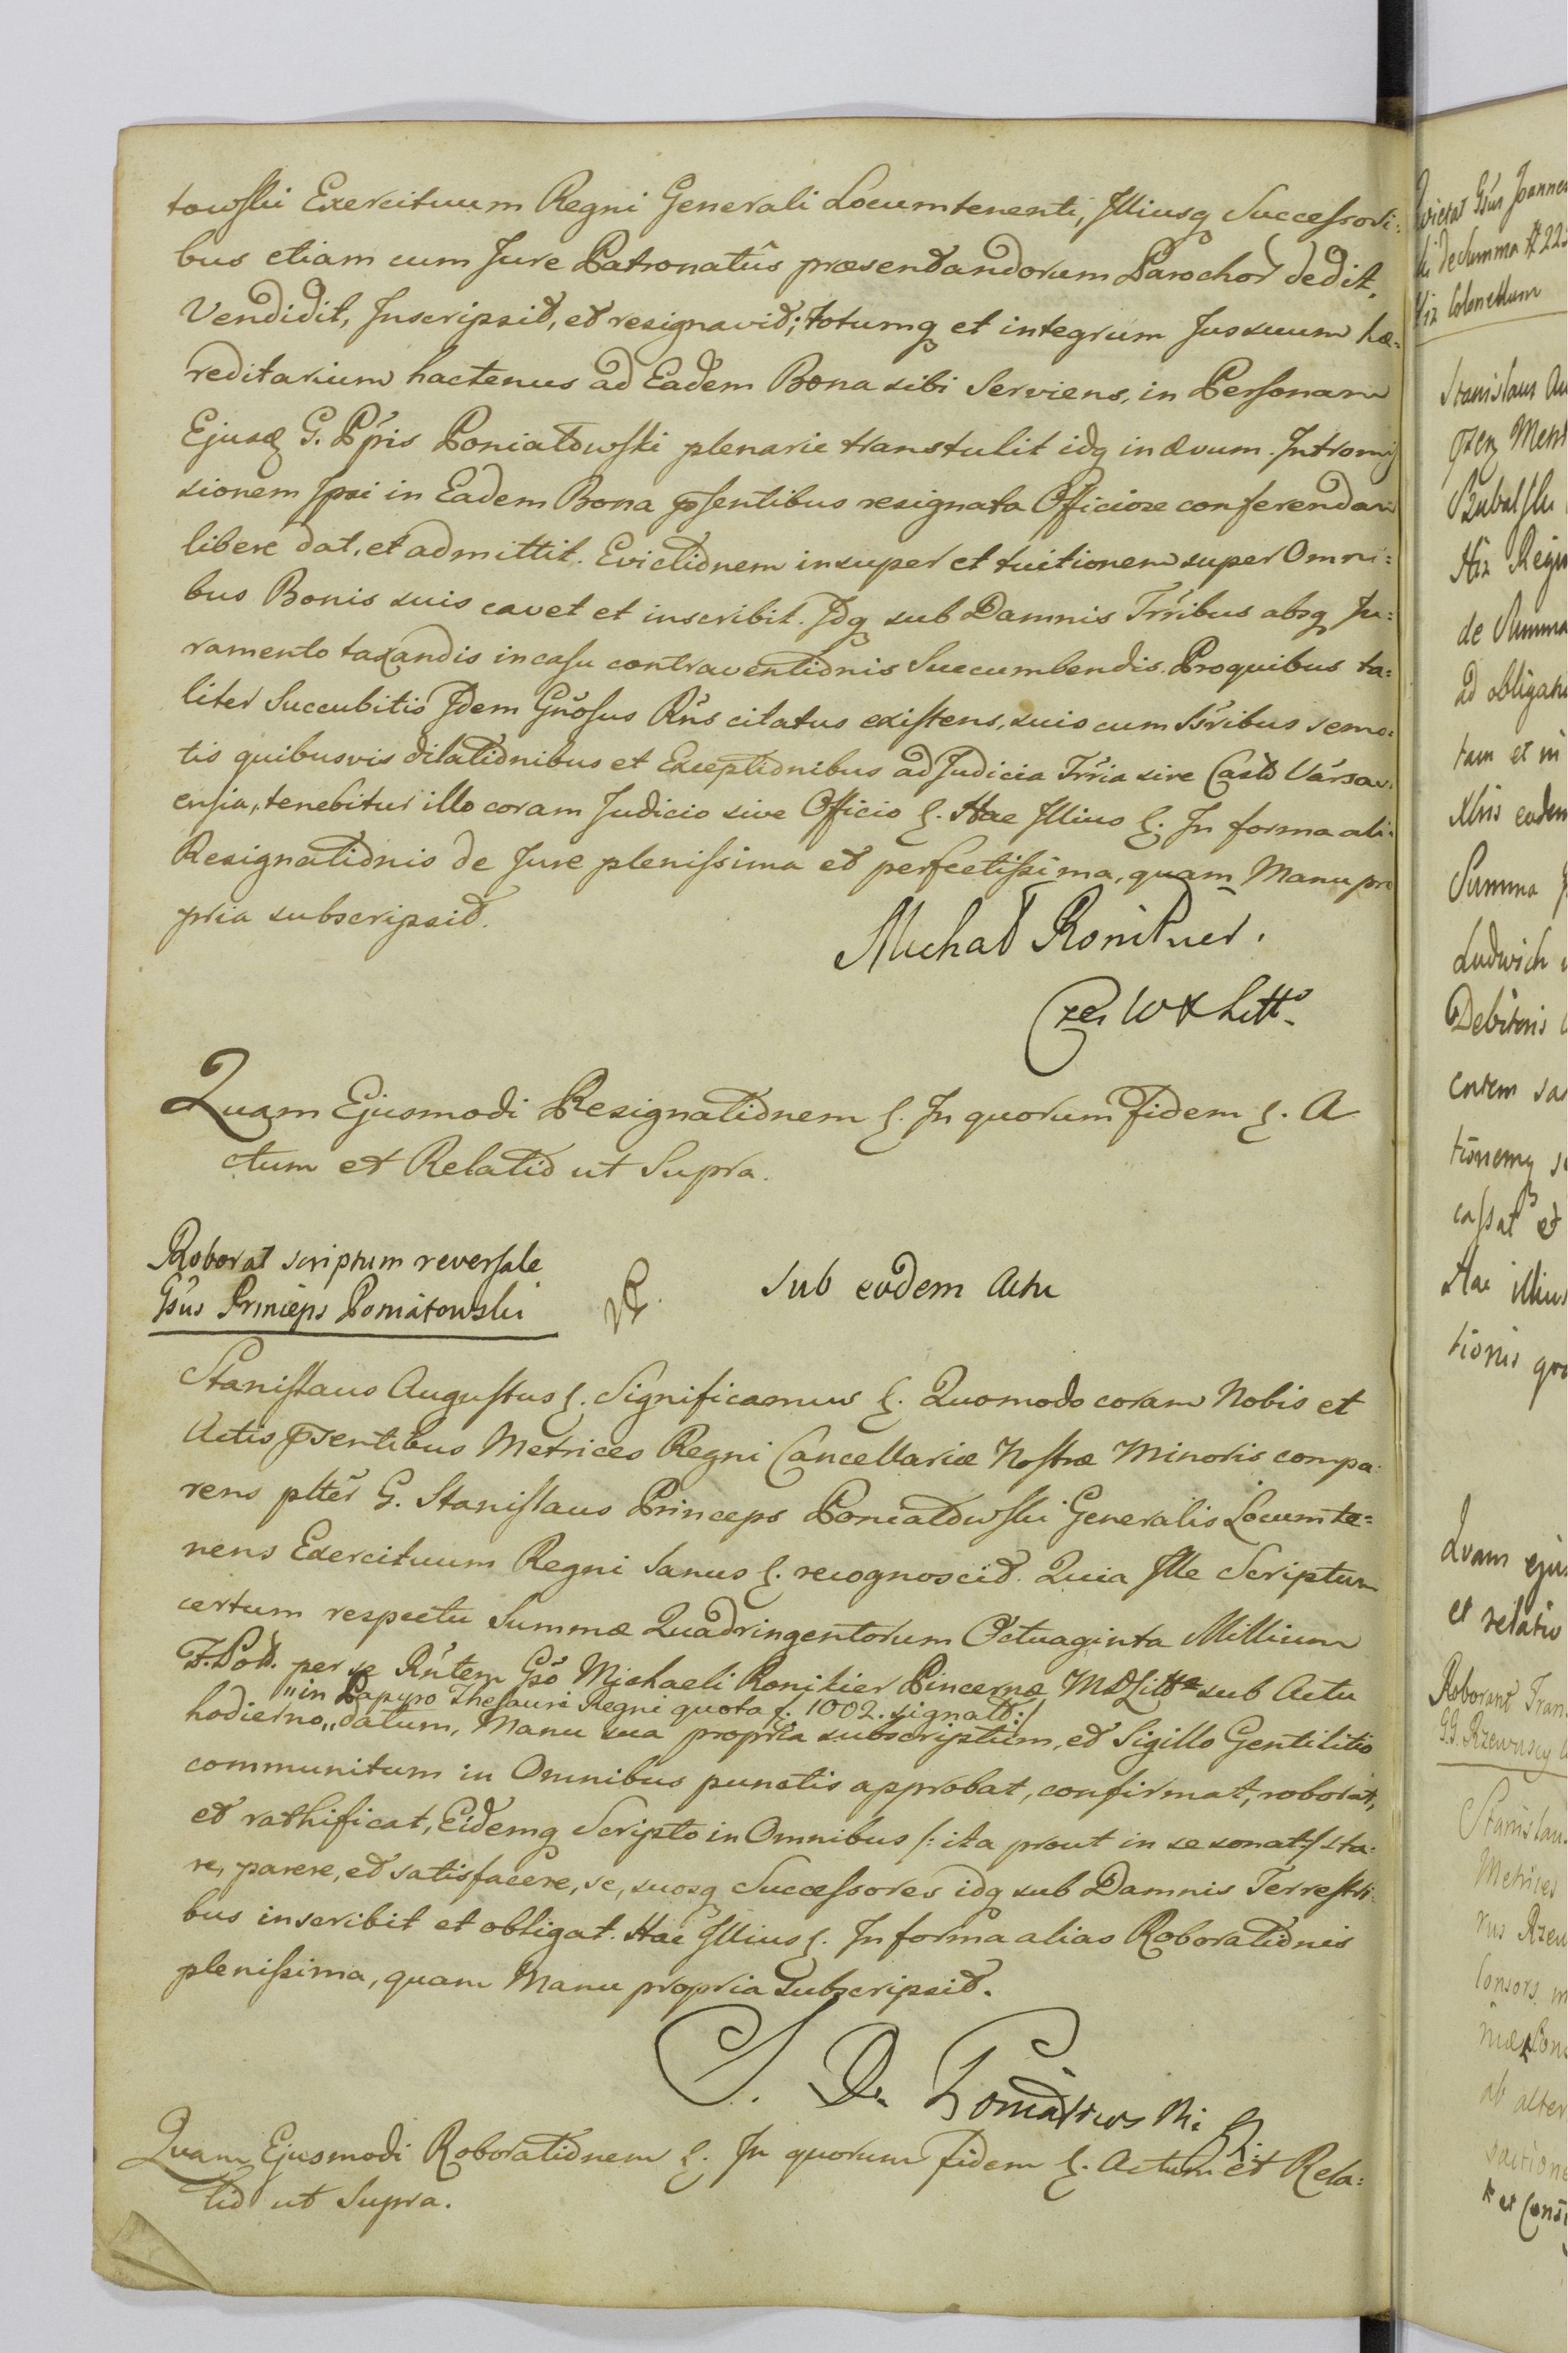 towski Exercituum Regni Generali Locumtenenti, Illiusq Successori:
bus etiam cum Jure Patronatûs præsentandorum Parochor dedit,
Vendidit, Inscripsit, et resignavit; totumq et integrum Jus suum hæ:
reditarium hactenus ad Eadem Bona sibi Serviens, in Personam
Ejusd G. Ppis Poniatowski plenarie transtulit idq in ævum. Intromis
sionem Ipsi in Eadem Bona psentibus resignata Officiose conferendam
libere dat, et admittit. Evictionem insuper et tuitionem super Omni:
bus Bonis suis cavet et inscribit. Idq sub Damnis Trribus absq Ju:
ramento taxandis in casu contraventionis Succumbendis. Pro quibus ta:
liter Succubitis Idem Gnosus Rns citatus existens, suis cum Ssribus semo:
tis quibusvis dilationibus et Exceptionibus ad Judicia Trria sive Casts Varsav:
ensia, tenebitur illo coram Judicio sive Officio &. Hac Illius &. In forma ali:
Resignationis de Jure plenissima et perfectissima, quam Manu pro
pria subscripsit.
Michał Ronikier.
Cze. W X Litt.
Quam Ejusmodi Resignationem &. In quorum fidem &. A
ctum et Relatio ut Supra.
Roborat scriptum reversale
Gsus Princeps Poniatowski
Sub eodem Actu
Stanislaus Augustus &. Significamus &. Quomodo coram Nobis et
Actis psentibus Metrices Regni Cancellariæ Nostræ Minoris compa:
rens plter G. Stanislaus Princeps Poniatowski Generalis Locumte:
nens Exercituum Regni Sanus &. recognoscit. Quia Ille Scriptum
certum respectu Summæ Quadringentorum Octuaginta Millium
F. Pol. per se Rntem Gso Michaeli Ronikier Pincernæ M D Litt sub Actu
"in Papyro Thesauri Regni quota f. 1002. signato:/
hodierno,, datum, Manu sua propria subscriptum, et Sigillo Gentilitio
communitum in Omnibus punctis approbat, confirmat, roborat,
et rathificat, Eidemq Scripto in Omnibus /: ita prout in se sonat :/ sta:
re, parere, et satisfacere, se, suosq Successores idq sub Damnis Terrestri:
bus inscribit et obligat. Hac Illius &. In forma alias Roborationis
plenissima, quam Manu propria Subscripsit.
S. P. Poniatowski
Quam Ejusmodi Roborationem &. In quorum fidem &. Actum et Rela:
tio ut Supra.
de Summa
ad obligat
tam et in
Summa
Ludwich
Debitoris
Hac illius
Quam ejus
et relatio
Roborant Tran
G.G. Rzewuscy
Stanislaus
Metrices